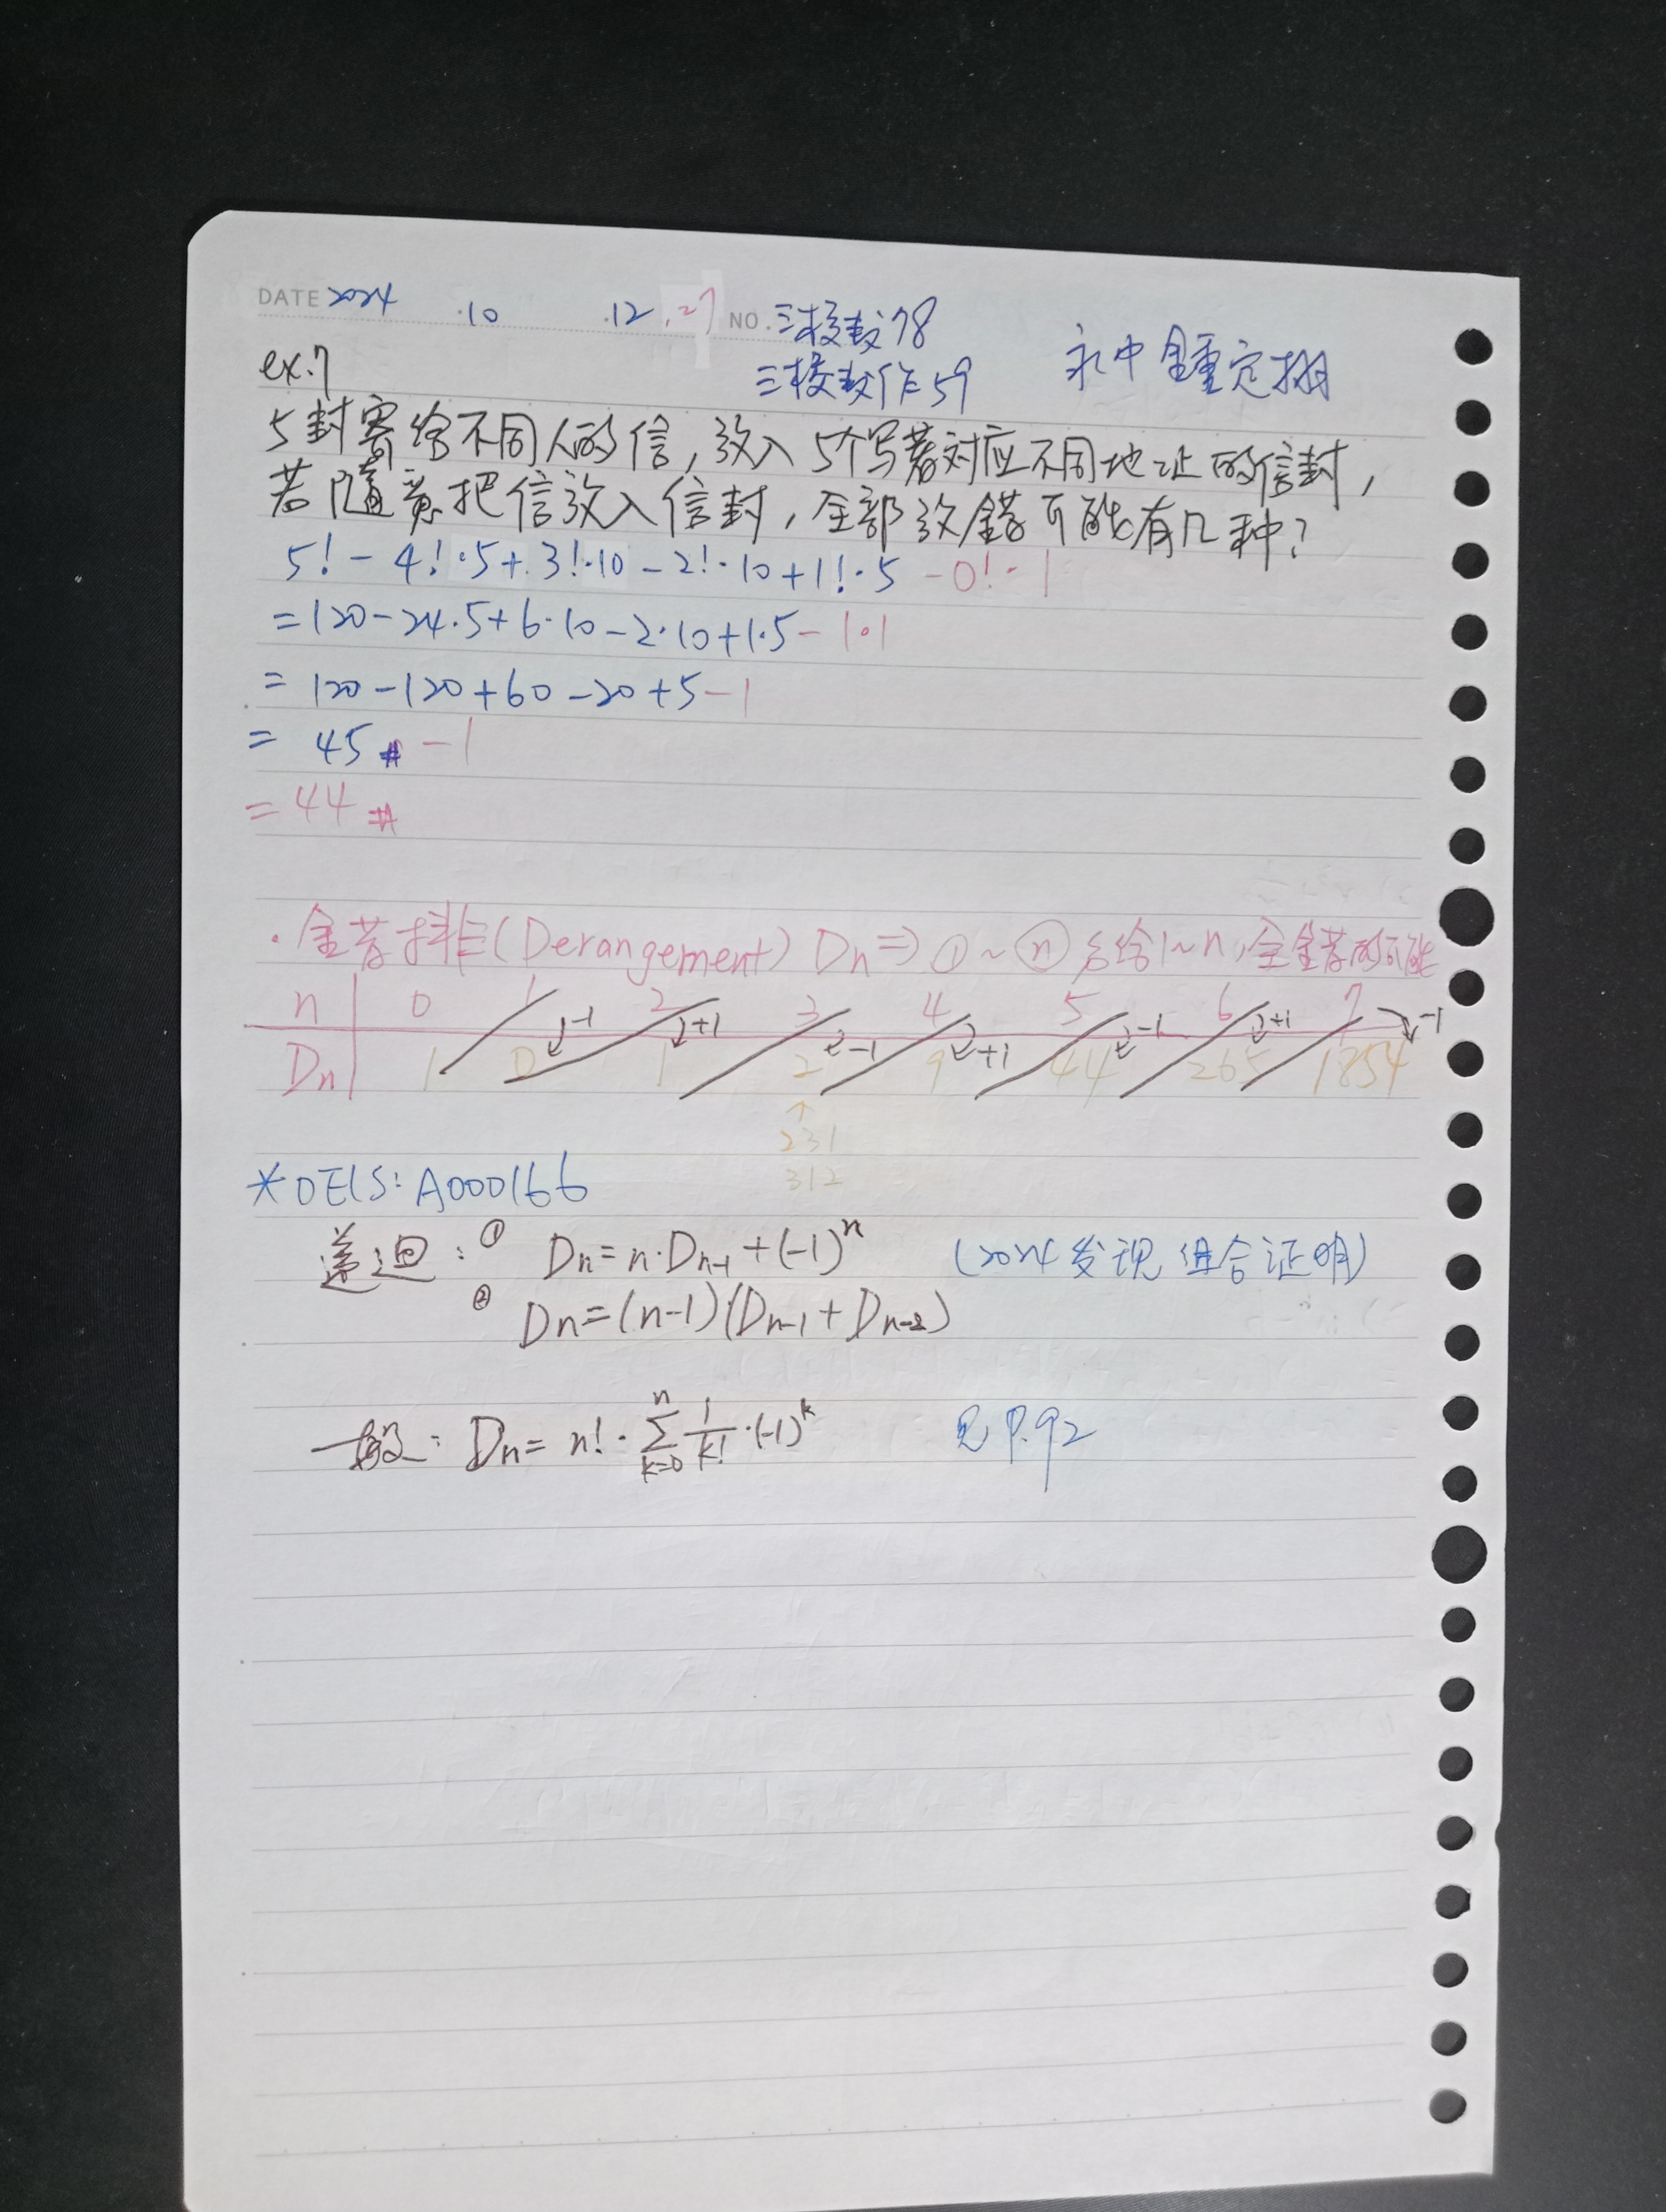 DATE 2024 .10 .12 .27 NO. 三校数78
三校数作59 永中 鍾定栩
ex.7
5封寄给不同人的信,放入5个写着对应不同地址的信封,
若隨意把信放入信封,全部放錯可能有几种?
5! - 4!·5 + 3!·10 - 2!·10 + 1!·5 - 0!·1
= 120 - 24·5 + 6·10 - 2·10 + 1·5 - 1·1
= 120 - 120 + 60 - 20 + 5 - 1
= 45 # - 1
= 44 #
·全錯排(Derangement) Dn ⇒ ①~ⓝ 1~n,全錯的可能
n | 0 1 2 3 4 5 6 7
-1 +1 -1 +1 -1 +1 -1
Dn | 1 0 1 2 9 44 265 1854
↑
231
312
*OEIS: A000166
递迴: ① Dn = n·Dn-1 + (-1)^n (2024发现组合证明)
② Dn = (n-1)(Dn-1 + Dn-2)
一般: Dn = n! · Σ_{k=0}^{n} 1/k! · (-1)^k 见 P.92